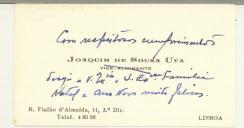 Com respeitosos cumprimentos
JOAQUIM DE SOUSA UVA
VICE-ALMIRANTE
a V. Ex.cia e S. Ex.ma Familia
Natal e Ano Novo muito felizes.
R. Fialho d'Almeida, 11, 2.º Dir.
Telef. 4 83 92
LISBOA